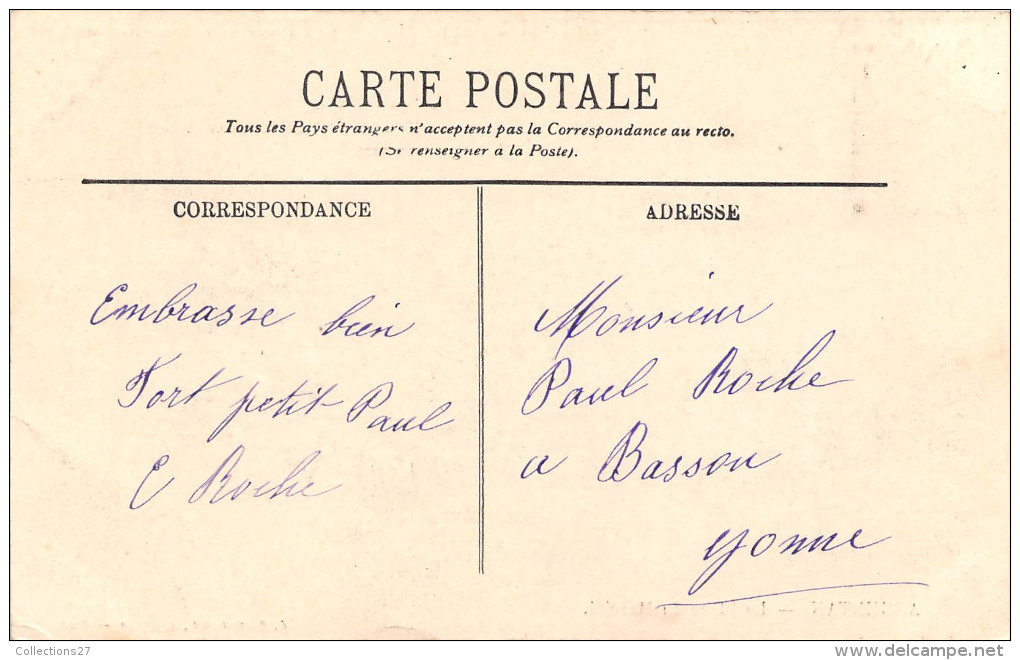 CARTE POSTALE
Tous les Pays étrangers n'acceptent pas la Correspondance au recto.
(Se renseigner à la Poste).
CORRESPONDANCE
ADRESSE
Embrasse bien
Fort petit Paul
E Roche
Monsieur
Paul Roche
a Bassou
Yonne
Collections27
delcampe.net